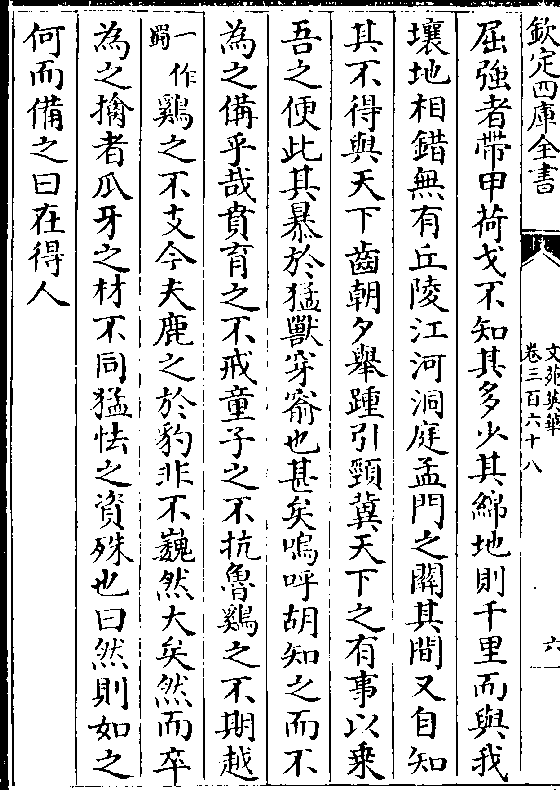 欽定四庫全書
文苑英華
卷三百六十八
六
屈強者帶甲荷戈不知其多少其綿地則千里而與我
壤地相錯無有丘陵江河洞庭孟門之關其間又自知
其不得與天下齒朝夕舉踵引頸冀天下之有事以乗
吾之便此其暴於猛獸穿窬也甚矣嗚呼胡知之而不
為之備乎哉賁育之不戒童子之不抗魯鷄之不期越
一作蜀鷄之不支今夫鹿之於豹非不巍然大矣然而卒
為之擒者爪牙之材不同猛怯之資殊也曰然則如之
何而備之曰在得人